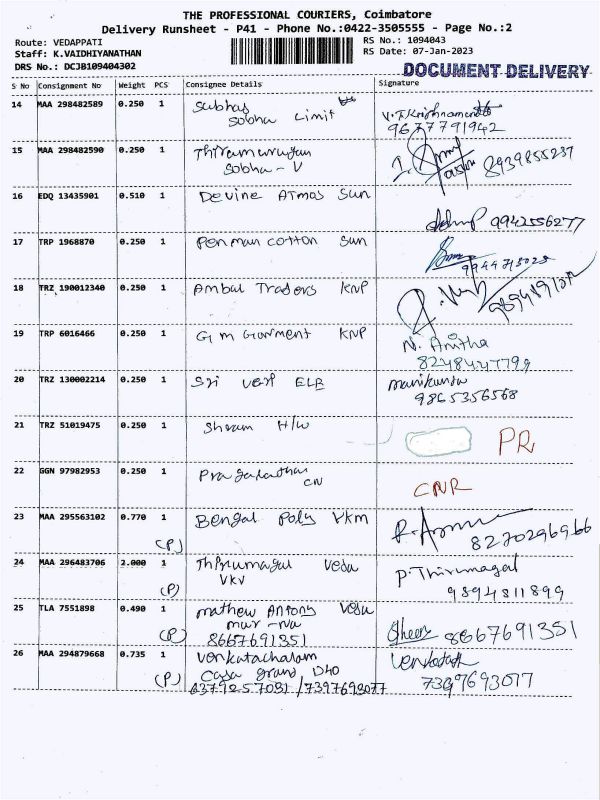 THE PROFESSIONAL COURIERS, Coimbatore
Delivery Runsheet - P41 - Phone No.:0422-3505555 - Page No.:2
Route: VEDAPPATI
Staff: K.VAIDHIYANATHAN
DRS No.: DCJB109404302
RS No.: 1094043
RS Date: 07-Jan-2023
DOCUMENT DELIVERY
S No Consignment No Weight PCS Consignee Details Signature
14 MAA 298482589 0.250 1 Subhas
Sobha Limit
9677791942
15 MAA 298482590 0.250 1 Thirumurugan
Sobha - V
8939855237
16 EDQ 13435901 0.510 1 Devine Atmos Sun
9942556277
17 TRP 1968870 0.250 1 Penman cotton Sun
18 TRZ 190012340 0.250 1 Ambal Traders KNP
19 TRP 6016466 0.250 1 G m Garment KNP N. Anitha
8248447799
20 TRZ 130002214 0.250 1 Sri ELB manikanda
9865356568
21 TRZ 51019475 0.250 1 H/W PR
22 GGN 97982953 0.250 1
CN CNR
23 MAA 295563102 0.770 1 Bengal Poly VKM
(P) 8270296966
24 MAA 296483706 2.000 1 Thirumagal Veda P. Thirumagal
(P) VKV 9894811899
25 TLA 7551898 0.490 1 mathew Antony Veda
(P) mur-Na
8667691351 8667691351
26 MAA 294879668 0.735 1 Venkatachalam
(P) Casa grand
6379257081 /7397693077 7397693077